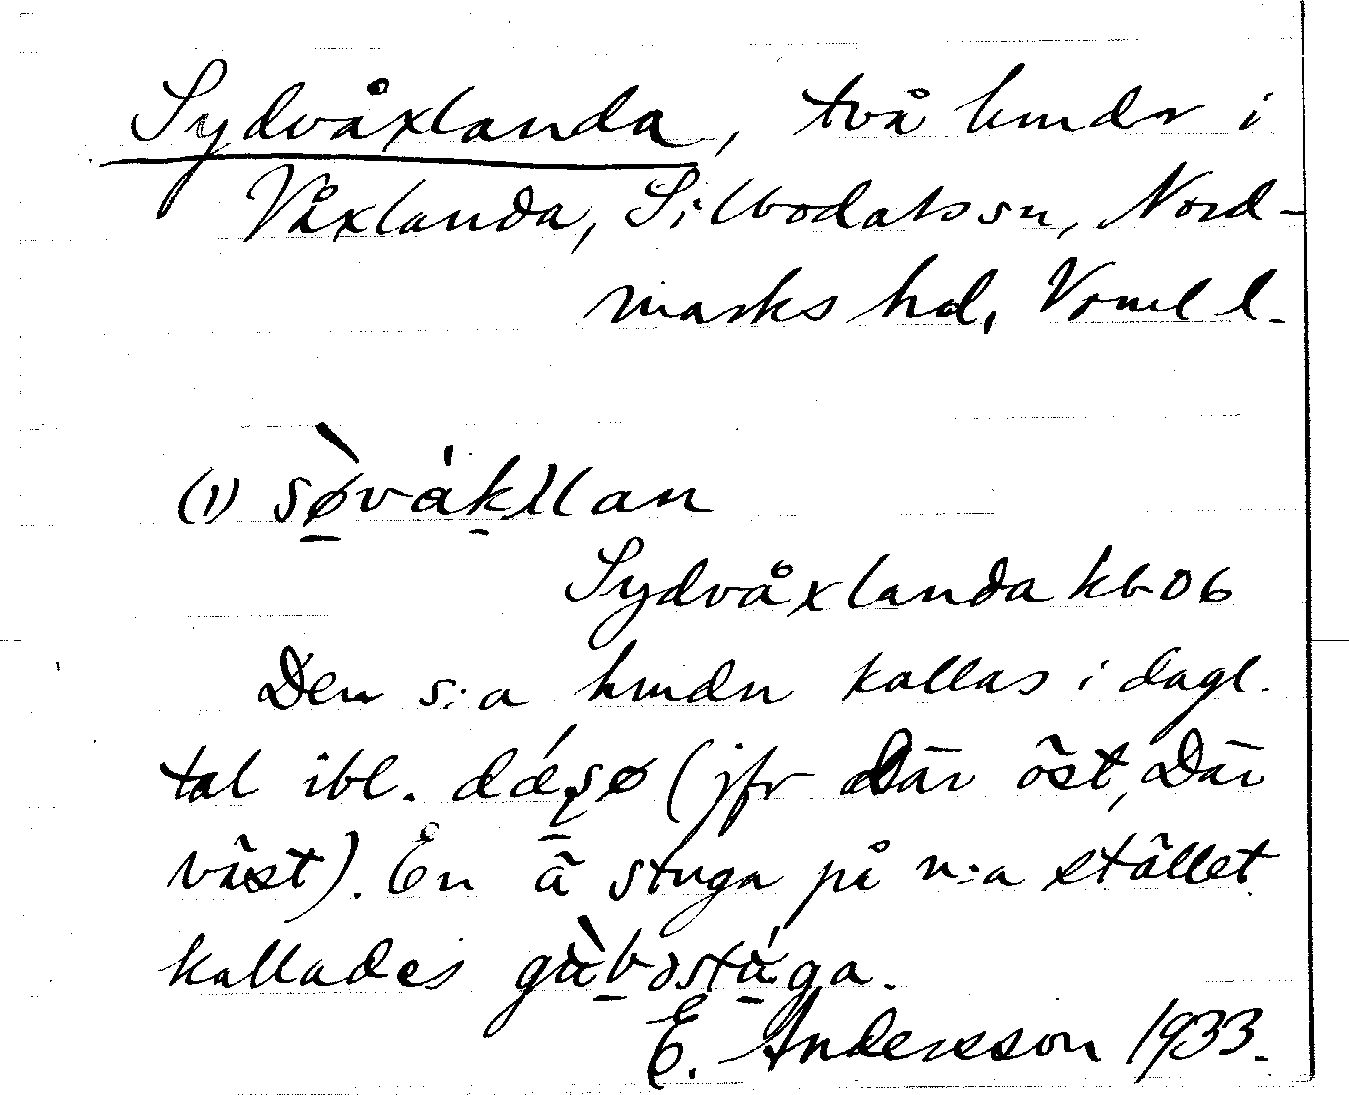 Sydvåxlanda, två hmdr i
Våxlanda, Silbodals sn, Nord-
marks hd, Vrml l.
(1)
Sydvåxlanda kb 06
Den s:a hmdn kallas i dagl.
tal ibl. (jfr Där öst, Där
väst). En ä stuga på n:a stället
kallades
E. Andersson 1933.